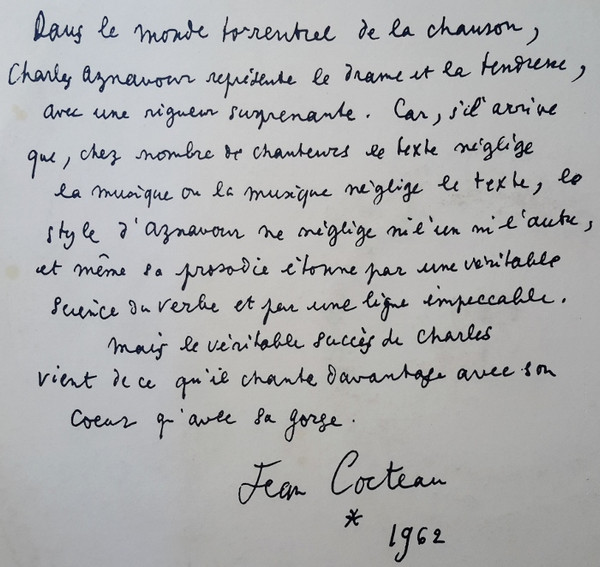 Dans le monde torrentiel de la chanson,
Charles Aznavour représente le drame et la tendresse,
avec une rigueur surprenante. Car, s'il arrive
que, chez nombre de chanteurs le texte néglige
la musique ou la musique néglige le texte, le
style d'Aznavour ne néglige ni l'un ni l'autre,
et même sa prosodie étonne par une véritable
science du verbe et par une ligne impeccable.
Mais le véritable succès de Charles
vient de ce qu'il chante davantage avec son
coeur qu'avec sa gorge.
Jean Cocteau
*
1962